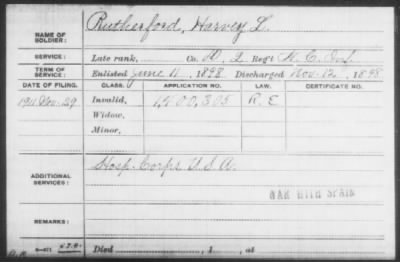 NAME OF SOLDIER: Rutherford, Harvey L.
SERVICE: Late rank, Co. D, 2 Reg't N. C. Inf.
TERM OF SERVICE: Enlisted June 11, 1898 Discharged Nov. 12, 1898
DATE OF FILING. CLASS. APPLICATION NO. LAW. CERTIFICATE NO.
1911 Nov. 29 Invalid, 1,500,305 R. E
Widow,
Minor,
ADDITIONAL SERVICES: Hosp. Corps U.S.A.
WAR WITH SPAIN
REMARKS:
Died , 1 , at